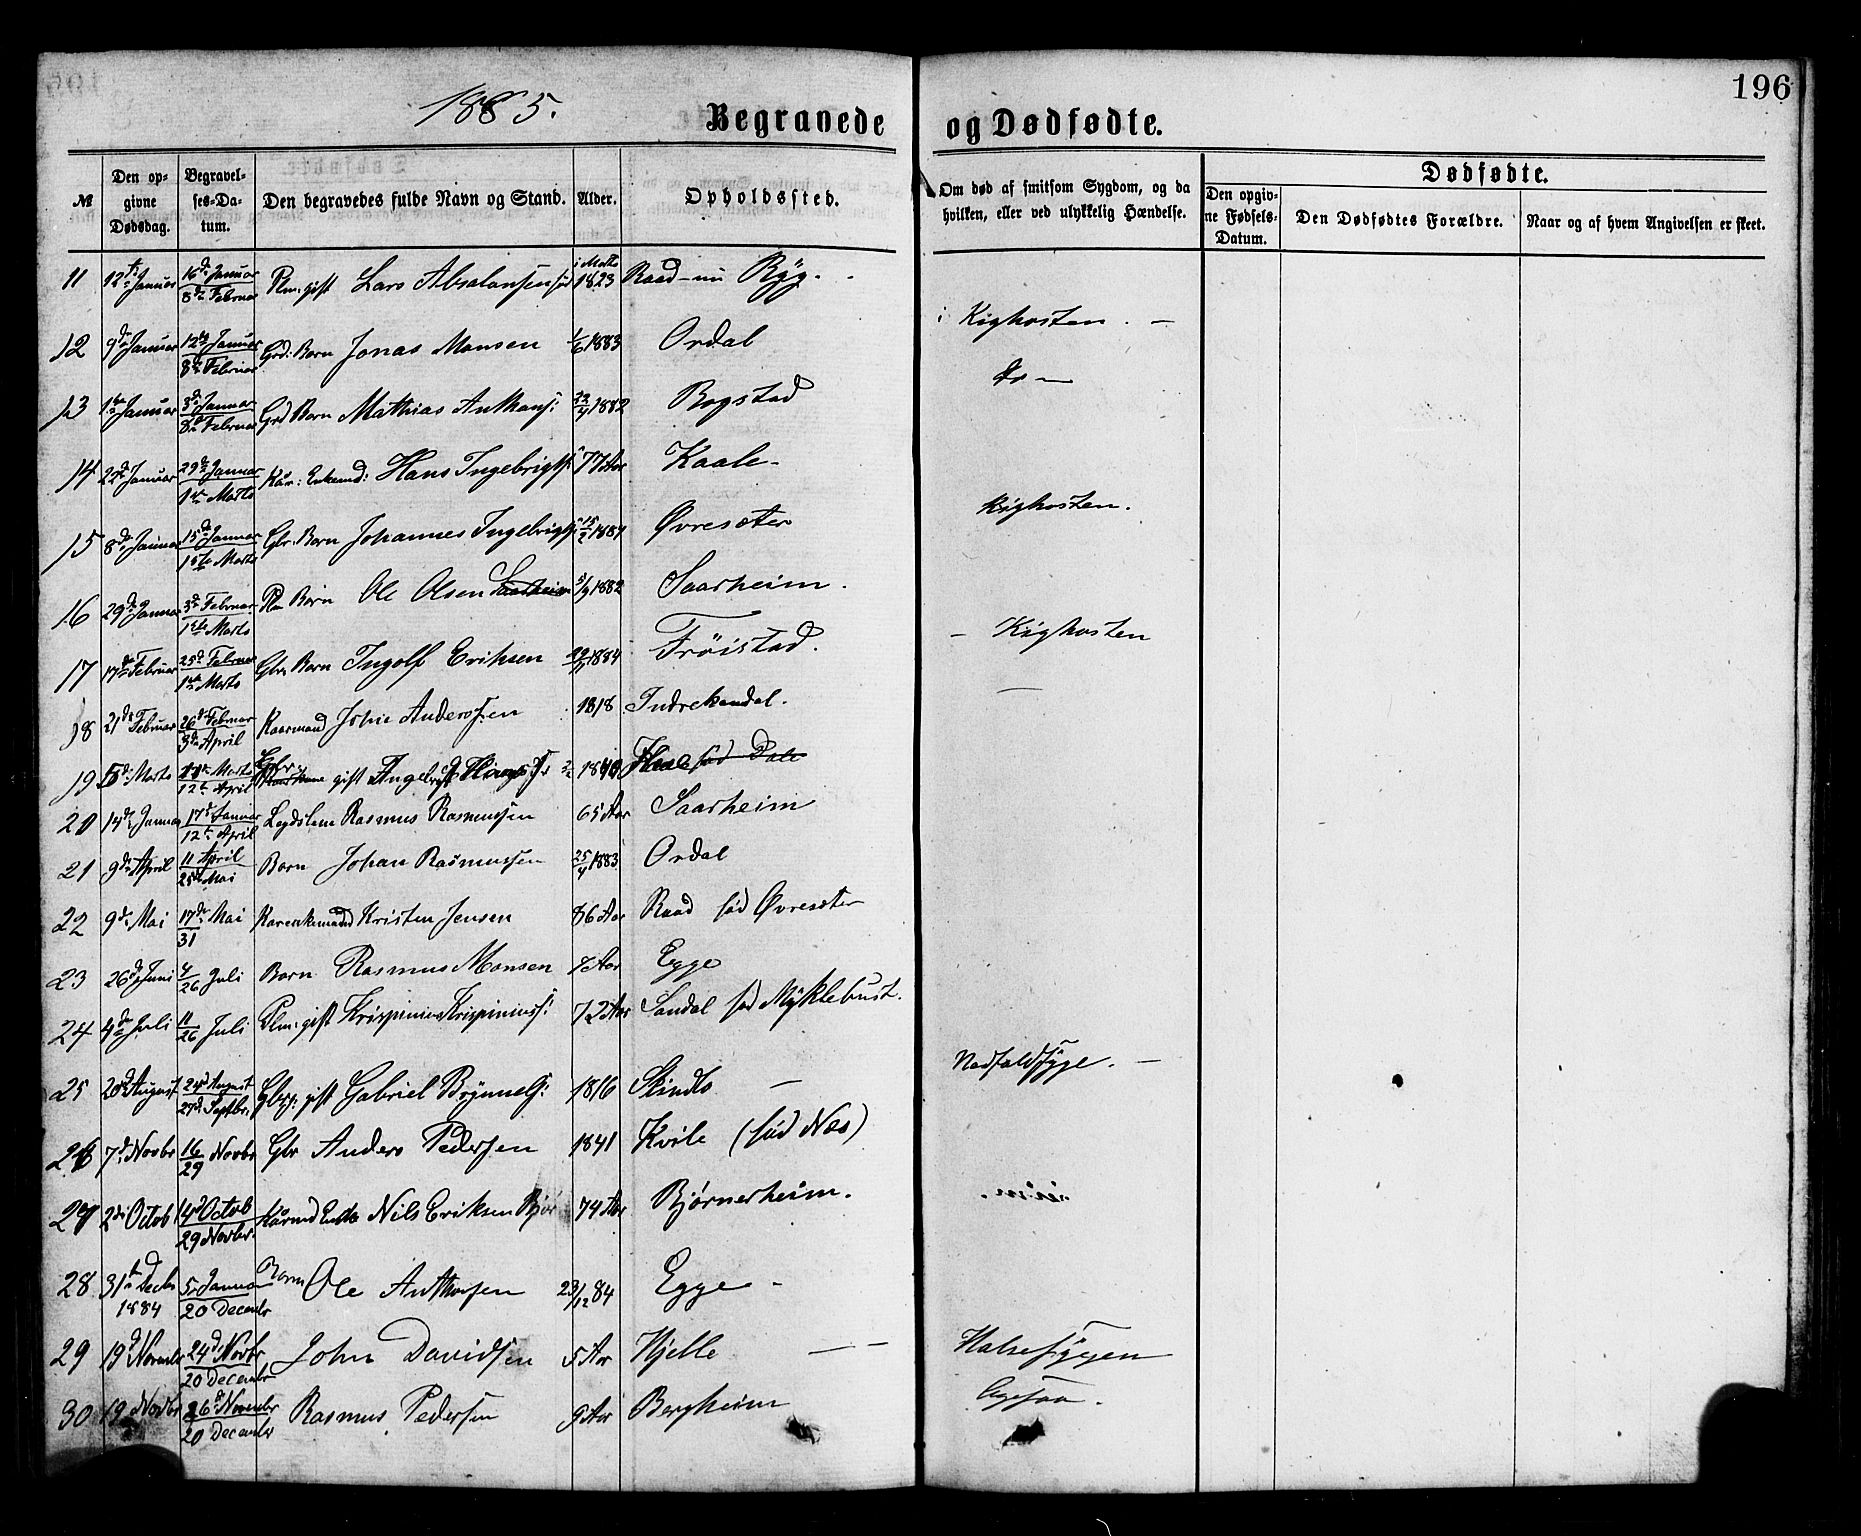 196
1885.
Begravede og Dødfødte.
№ Den opgivne Dødsdag. Begravelses-Datum. Den begravedes fulde Navn og Stand. Alder. Opholdssted. Om død af smitsom Sygdom, og da hvilken, eller ved ulykkelig Hændelse. Dødfødte.
Den opgivne Fødsels-Datum. Den Dødfødtes Forældre. Naar og af hvem Angivelsen er skeet.
11 12te Januar 16de Januar 8de Februar Plm: gift Lars Absalonsen i Marts 1823 Raad - nu Ryg.
12 9de Januar 12te Januar 8de Februar Grd: Barn Jonas Monsen 1/6 1883 Ordal Kighosten. —
13 1te Januar 3de Januar 8de Februar Grd Barn Mathias Anthons: 1882 Bogstad do —
14 22de Januar 29de Januar 1te Marts Kår: Enkemd: Hans Ingebrigts: 77 Aar Kaale
15 8de Januar 15de Januar 1ste Marts Gbr. Barn Johannes Ingebrigts 15/2 1881 Øvresæter Kighosten.
16 29de Januar 3de Februar 1ste Marts Plm Barn Ole Olsen 5/9 1882 Saarheim.
17 17de Februar 25de Februar 1ste Marts Gbr Barn Ingolf Eriksen 1884 Frøistad. — Kighosten
18 21de Februar 26de Februar 3de April Kaarmand Anderssen 1818 Indrekandal. —
19 5de Marts 11te Marts 12te April Gbr gift
20 14de Januar 17de Januar 12te April Legdslem Rasmus Rasmussen 65 Aar Saarheim
21 9de April 11 April 25de Mai Barn Johan Rasmussen 25/4 1883 Ordal
22 9de Mai 17de Mai 31 Karenkemand Kristen Jensen 86 Aar Raad fød Øvresæter
23 26de Juni 4/26 Juli Barn Rasmus Monsen Aar Egge
24 4de Juli 11/26 Juli Plm: gift Krispinus Krispinuss: 72 Aar Sandal fød Myklebust.
25 20de August 24d August 27d Septbr. Gbr: gift Gabriel Brynnels: 1816 Skindlo — Nedfaldssyge. —
26 7de Novbr 16/29 Novbr Gbr Anders Pedersen 1841 Kvile (fød Næs)
27 2de Octob 14d Octob 29 Novbr. Kårmd Enke Nils Eriksen 74 Aar Bjørnerheim.
28 31te Decbr 1884 5te Januar 20 Decembr Barn Ole Anthonsen 23/12 84 Egge -
29 19d Novembr 24d Novbr 20 Decembr John Davidsen 5 Aar Hjelle — — Halssygen
30 19 Novbr 26d Novembr 20 Decembr Rasmus Pedersen 9 Aar Bergheim ligesaa.